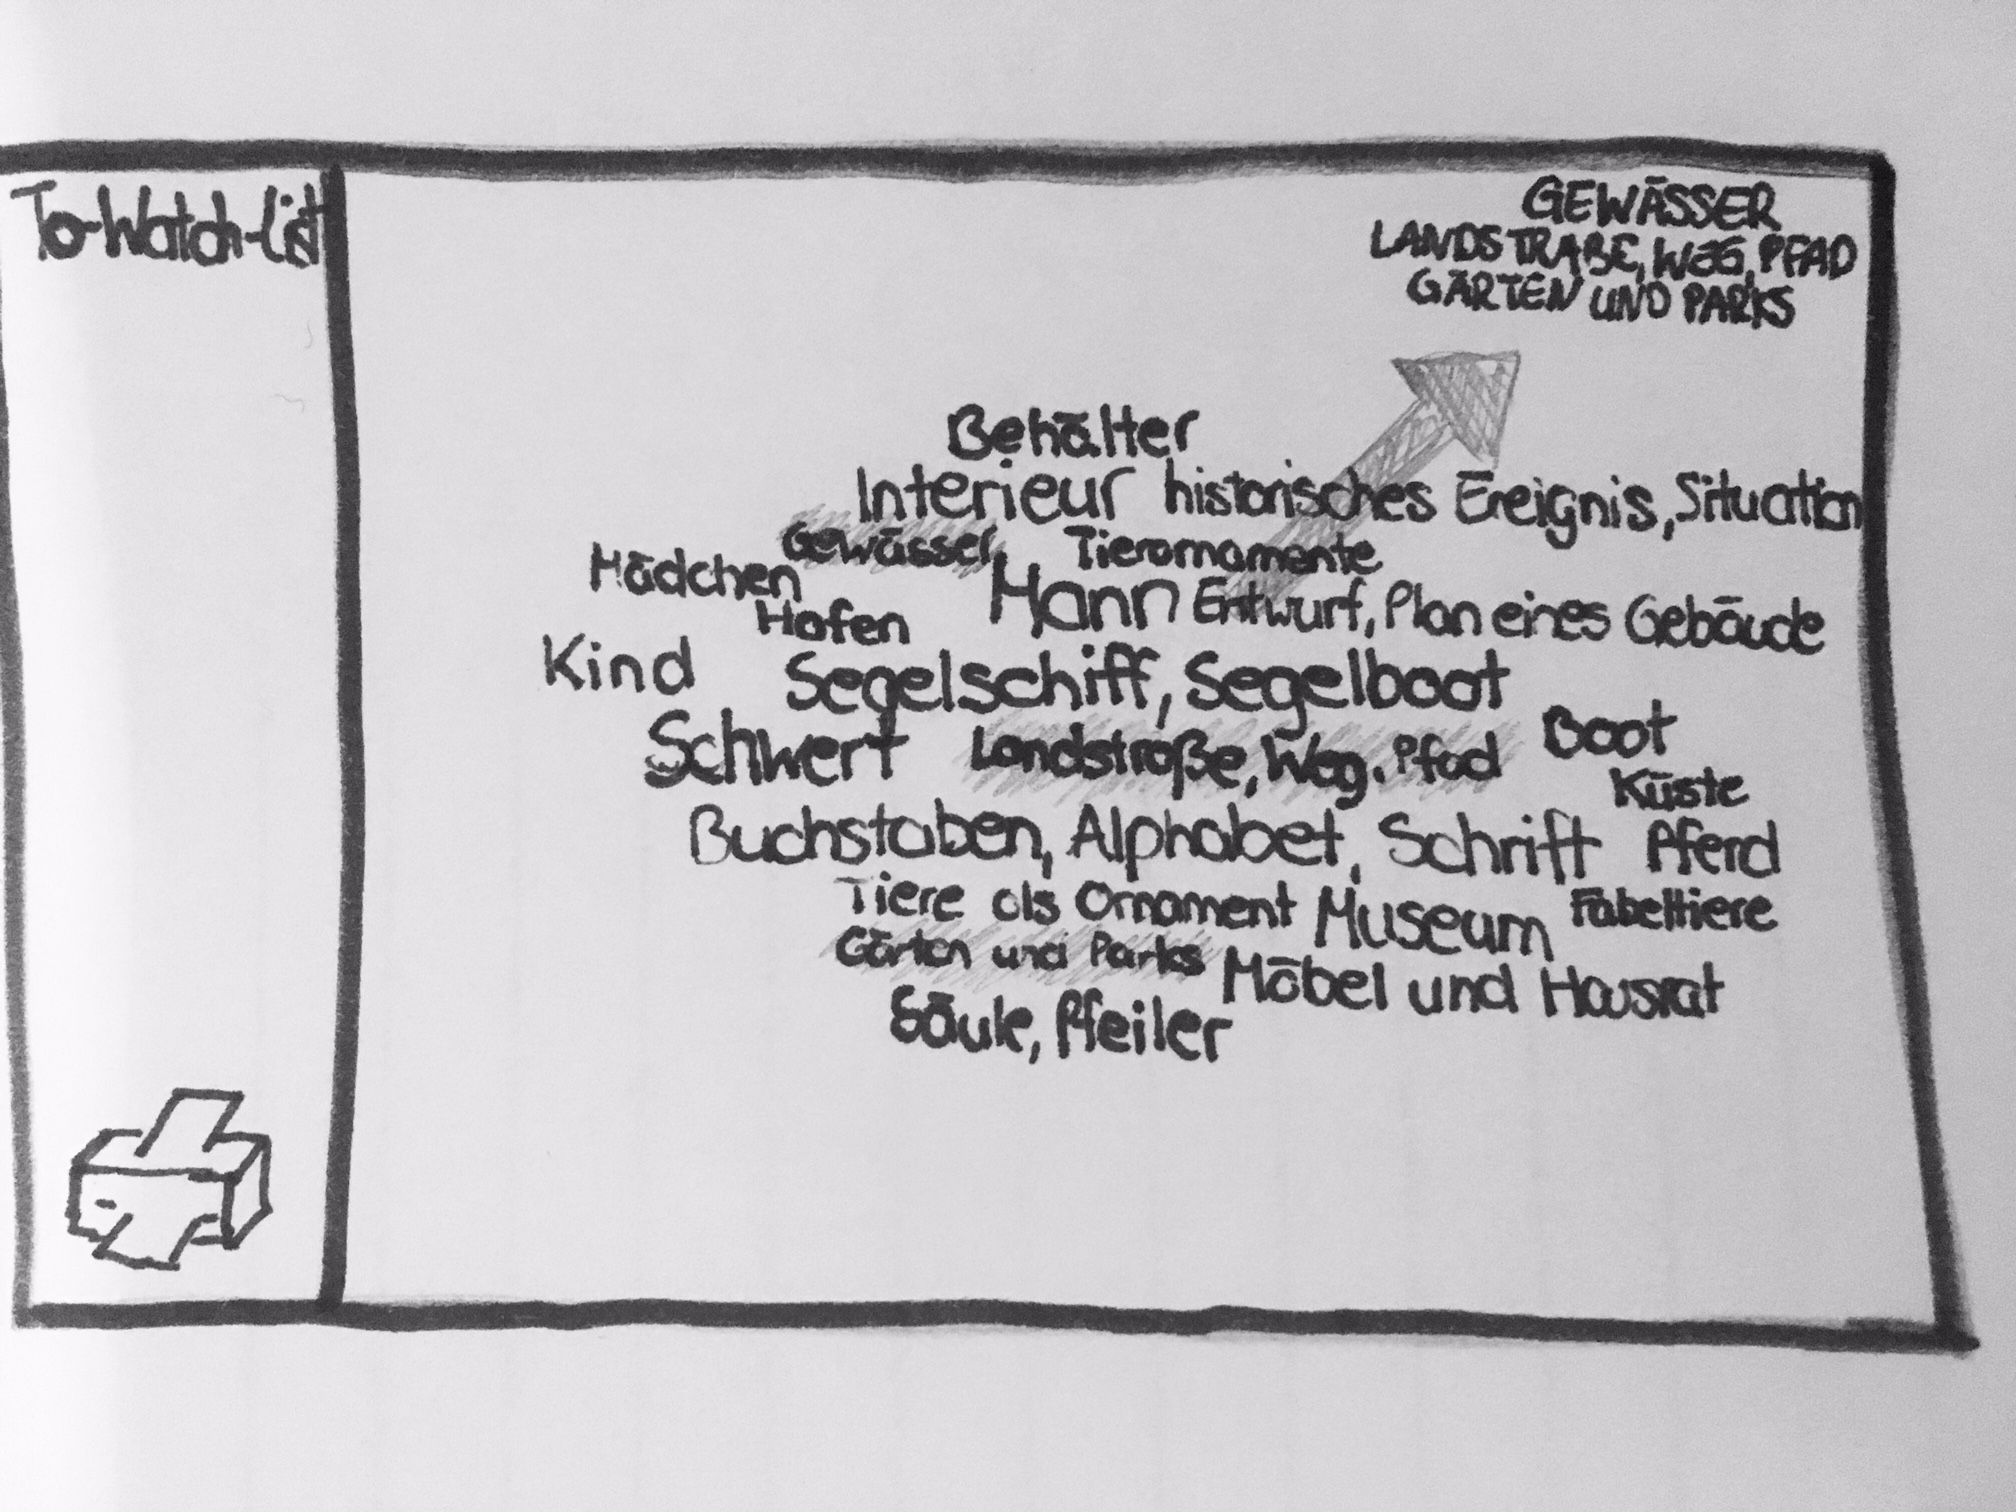 To-Watch-List
GEWÄSSER
LANDSTRAßE, WEG, PFAD
GÄRTEN UND PARKS
Behälter
Interieur historisches Ereignis, Situation
Gewässer Tierornamente
Mädchen
Mann Entwurf, Plan eines Gebäude
Hafen
Kind Segelschiff, Segelboot
Schwert Landstraße, Weg, Pfad Boot
Küste
Buchstaben, Alphabet, Schrift Pferd
Tiere als Ornament Museum Fabeltiere
Gärten und Parks Möbel und Hausrat
Säule, Pfeiler